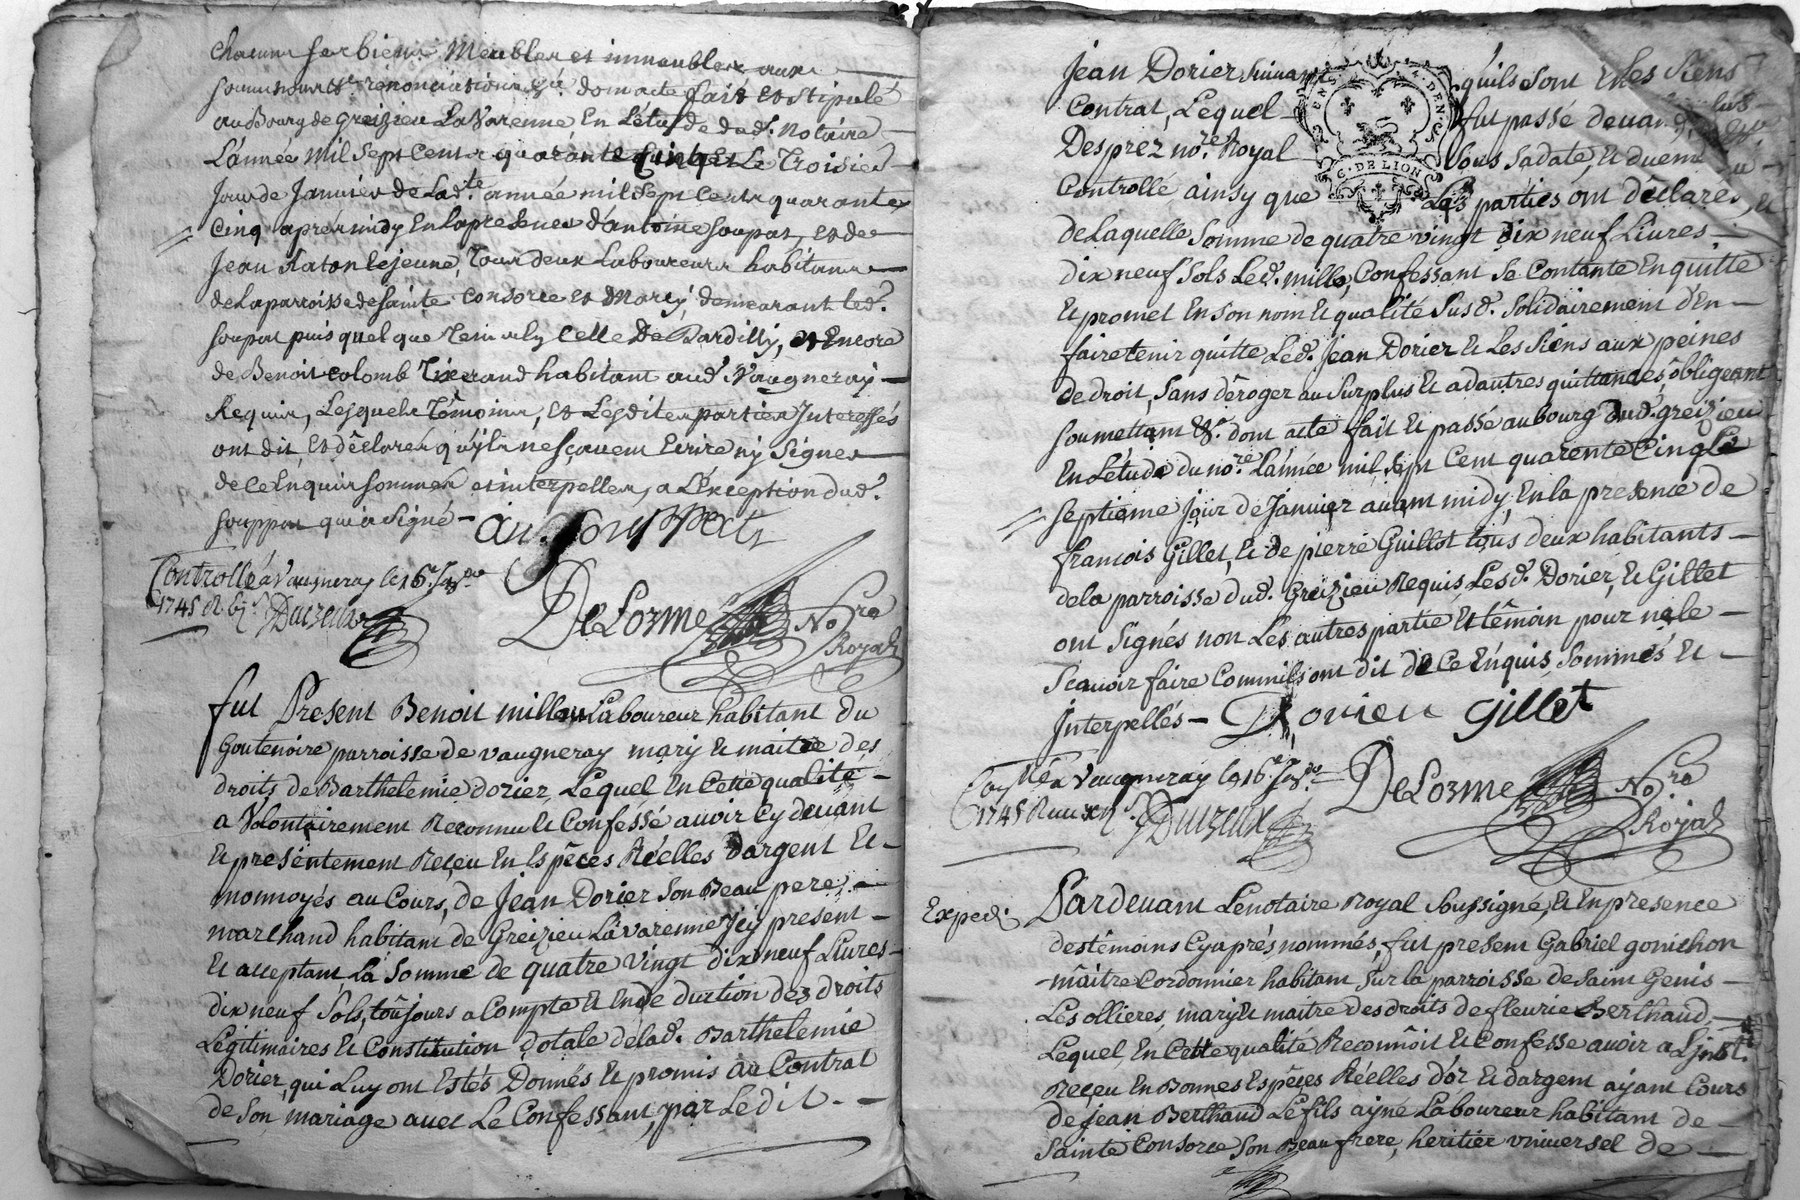 chacun ses biens Meubles et immeubles aux
soumissions renonciations &a. dont acte fait et stipulé
au Bourg de greizieu La Varenne, En Létude dudt. Notaire
L'année Mil Sept Cents quarante Cinq Et Le Troisie
Jour de Janvier de Ladte. année mil sept Cents quarante
Cinq après midy En la presence d'antoine soupat, et de
Jean Raton lejeune, Tous deux Laboureurs habitans
de La parroisse de Sainte Consorce et Marcy, demeurant led.
soupat puis quelque Tems En Celle De Bardilly, et Encore
de Benoit Colomb Tixerand habitant aud. Vaugneray
Requis, Lesquels Témoins, et Lesdites parties Interessés
ont dit et déclarés qu'ils ne sçavent Ecrire ny Signer
de ce Enquis sommés et interpellés, a L'éxception dud.
souppat qui a Signé
an. souppat
Controllé à Vaugneray le 16e. Jer.
1745 R. Ducreux
DeLorme No.re Royal
fut Present Benoit millon Laboureur habitant du
Goutenoire parroisse de vaugneray mary et maitre des
droits de Barthelemie dorier, Lequel En Cette qualité
a Volontairement Reconnu et Confessé avoir Cy devant
et présentement Reçeu En Espêces Réelles D'argent et
monnoyés au Cours, de Jean Dorier Son Beau pere,
marchand habitant de Greizieu La varenne Icy présent
et acceptant, La Somme de quatre vingt dix neuf Livres
dix neuf Sols, toûjours a Compte et En de duction des droits
Légitimaires et Constitution dotale de lad. Barthelemie
Dorier, qui Luy ont Estés Donnés et promis au Contrat
de Son mariage avec Le Confessant, par Ledit
Jean Dorier Suivant qu'ils Sont et les Siens
Contrat, Lequel fut passé devant
Desprez nore. Royal Sous Sa date, et duement
Controllé ainsy que Les parties ont déclarés, et
EN A DEN.S
G. DE LION
de Laquelle Somme de quatre vingt dix neuf Livres
dix neuf Sols Led. millo, Confessant Se Contante En quitte
et promet En Son nom et qualité Susd. Solidairement d'En
faire tenir quitte Led. Jean Dorier et Les Siens aux peines
de droit, Sans déroger au Surplus et a d'autres quittances, obligeant
soumettant &a. dont acte fait et passé au bourg dud. greizieu
En L'étude du nore. L'année mil sept Cent quarente Cinq Le
septieme jour de Janvier avant midy, En la presence de
francois Gillet, et de pierre Guillot tous deux habitants
de la parroisse dud. Greizieu Requis, Lesd. Dorier, et Gillet
ont Signés non Les autres partie et têmoin pour ne le
Scavoir faire Comm'ils ont dit de Ce Enquis, Sommés et
Interpellés
Dorier gillet
Conllé a Vaugneray le 16e. Jer.
1745 R. Ducreux
DeLorme No.re Royal
Exped.
Pardevant Le notaire Royal Soussigné, et En presence
des têmoins Cy aprés nommés, fut present Gabriel gonichon
maitre Cordonnier habitant Sur la parroisse de Saint Genis
Les ollieres, mary et maitre des droits de fleurie Berthaud
Lequel En Cette qualité Reconnôit et Confesse avoir a L'inst.
Reçeu En Bonnes Espêces Réelles d'or et d'argent ayant Cours
de jean Berthaud Le fils ayné Laboureur habitant de
Sainte Consorce Son Beau frere, heritier vniversel de